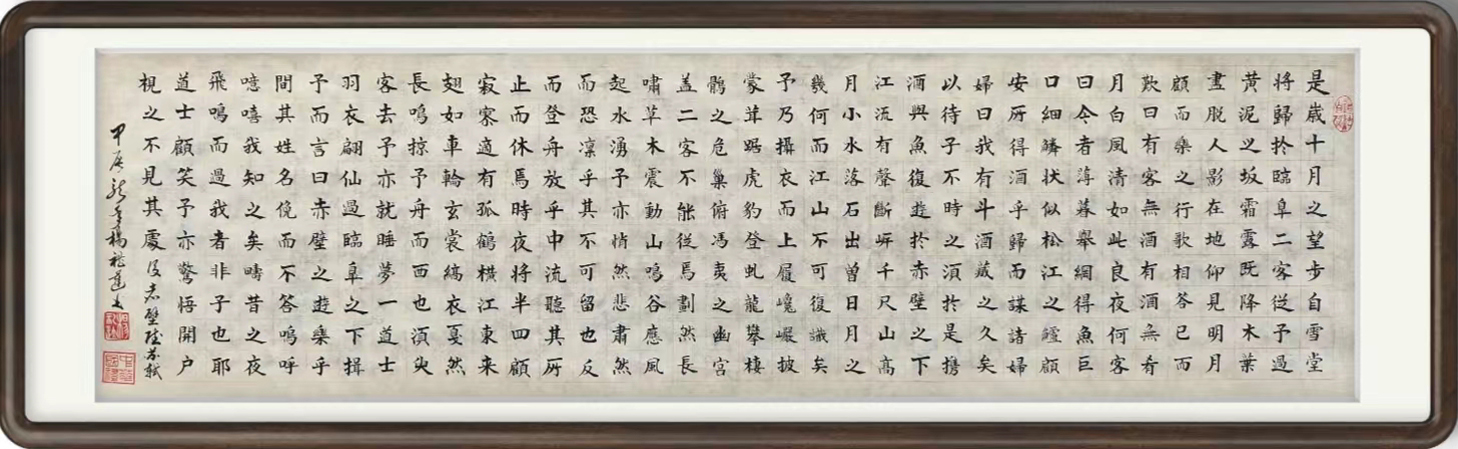 是歲十月之望步自雪堂
將歸於臨皐二客從予過
黃泥之坂霜露既降木葉
盡脫人影在地仰見明月
顧而樂之行歌相答已而
歎曰有客無酒有酒無肴
月白風清如此良夜何客
曰今者薄暮舉網得魚巨
口細鱗狀似松江之鱸顧
安所得酒乎歸而謀諸婦
婦曰我有斗酒藏之久矣
以待子不時之須於是攜
酒與魚復遊於赤壁之下
江流有聲斷岸千尺山高
月小水落石出曾日月之
幾何而江山不可復識矣
予乃攝衣而上履巉巖披
蒙茸踞虎豹登虬龍攀棲
鶻之危巢俯馮夷之幽宮
蓋二客不能從焉劃然長
嘯草木震動山鳴谷應風
起水湧予亦悄然悲肅然
而恐凜乎其不可留也反
而登舟放乎中流聽其所
止而休焉時夜將半四顧
寂寥適有孤鶴橫江東來
翅如車輪玄裳縞衣戛然
長鳴掠予舟而西也須臾
客去予亦就睡夢一道士
羽衣翩仙過臨皐之下揖
予而言曰赤壁之遊樂乎
問其姓名俛而不答嗚呼
噫嘻我知之矣疇昔之夜
飛鳴而過我者非子也耶
道士顧笑予亦驚悟開戶
視之不見其處 後赤壁賦蘇軾
甲辰龍年楊